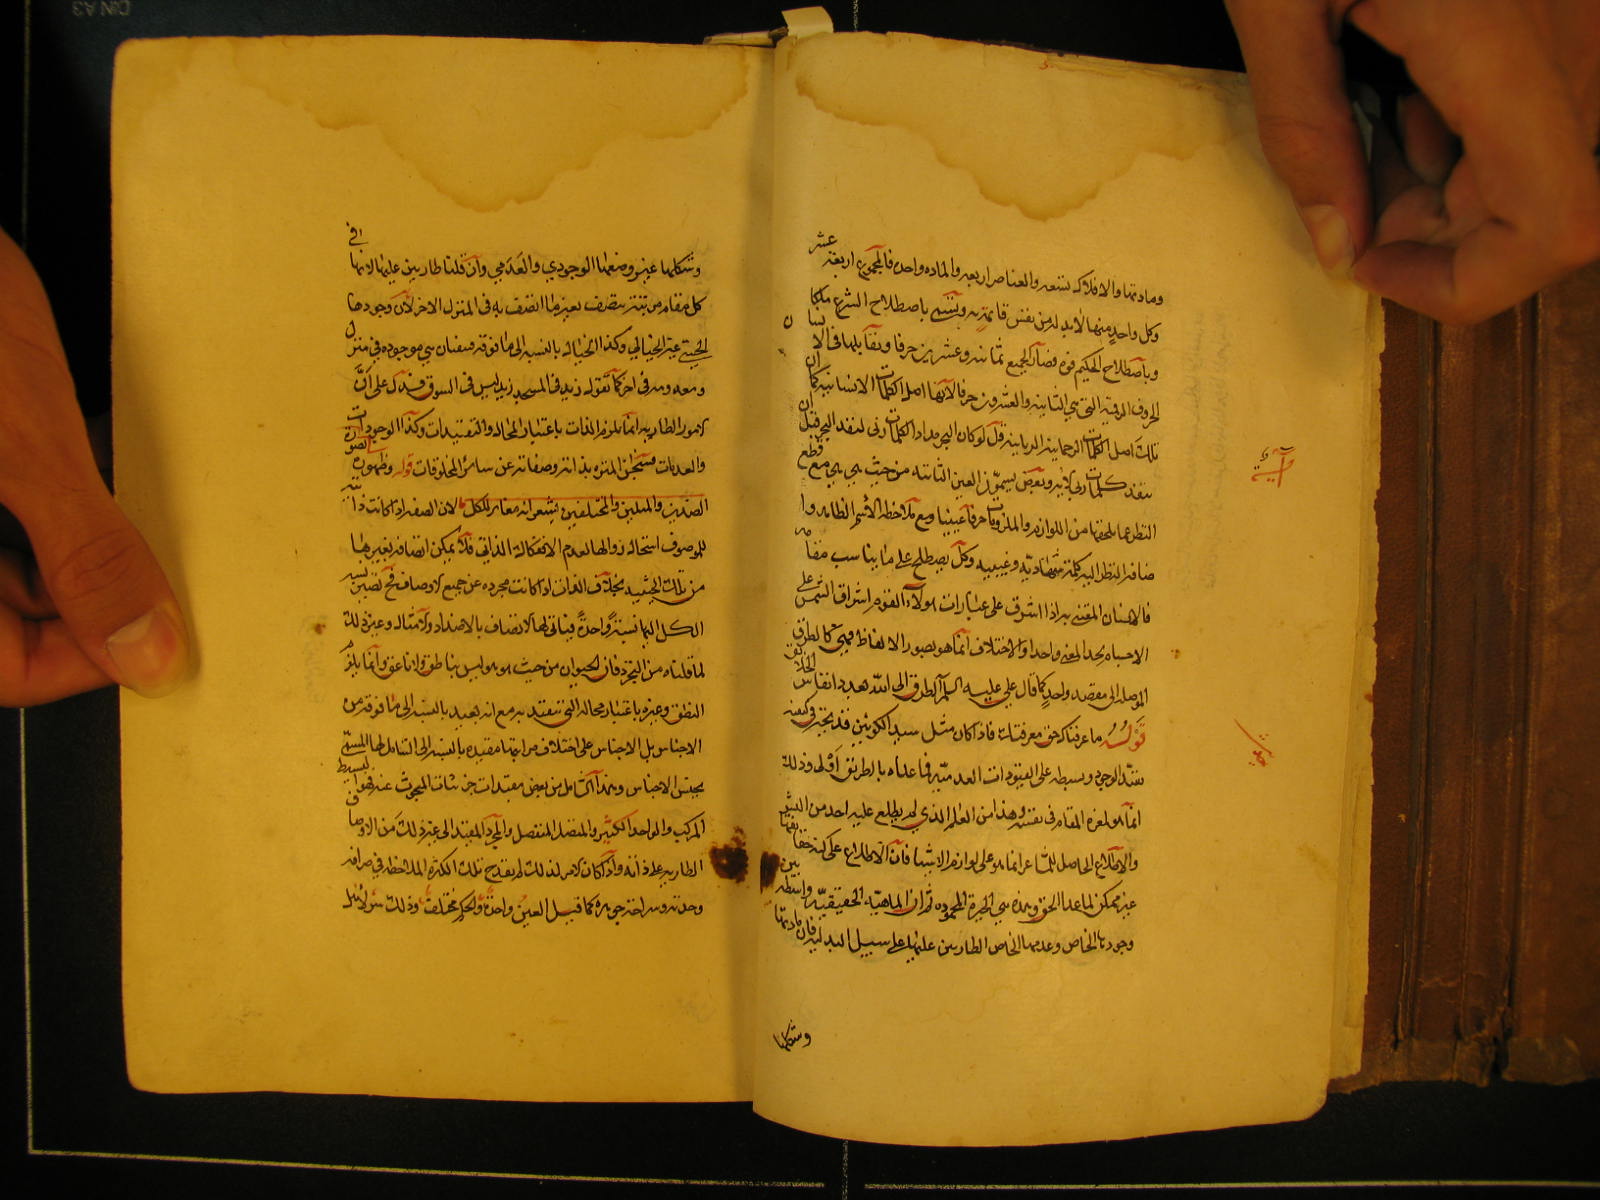 ومادتها والافلاك تسعه والعناصر اربعه والماده واحده فالمجموع اربعة عشر
وكل واحد منها لابد له من نفس قايمة به وتسمى باصطلاح الشرع ملكا
وباصطلاح الحكيم قوه فصار الجميع ثمانيه وعشرين حرفا وتقابلها في الانسان
الحروف الرقميه التي هي الثمانيه والعشرون حرفا لانها اصل الكلمات الانسانيه كما ان
تلك اصل الكلمات الرحمانيه الربانيه قل لو كان البحر مدادا لكلمات ربي لنفد البحر قبل ان
تنفد كلمات ربي الايه وبعض يسمون العين الثابته من حيث هي هي مع قطع
النظر عما يلحقها من اللوازم والملزومات حرفا غيبيا ومع ملاحظه الاسم الظاهر وا
ضافه النظر اليه كلمة شهاديه وغيبيه وكل يصطلح على ما يناسب مقامه
فالانسان المقتنى به اذا اشرق على عبارات هولاء القوم اشراق الشمس على
الاجسام يجد المعنى واحدا والاختلاف انما هو بصور الالفاظ فهي كالطرق
الموصله الى مقصد واحد كما قال علي عليه السلم الطرق الى الله بعدد انفاس الخلائق
قوله ما عرفناك حق معرفتك فاذا كان مثل سيد الكونين قد تحير في كيفيه
تقيد الوجود وبسطه على القيودات العدميه فما عداه بالطريق اولى وذلك
انما هو لعزه المقام في نفسه وهذا من العلم الذي لم يطلع عليه احد من البشر
والاطلاع الحاصل للشاعر انما هو على لوازم الاشيا فان الاطلاع على كنه حقايقها
غير ممكن لما عدا الحق وهذه هي الحيرة المحموده ثم ان الماهيه الحقيقيه واسطه بين
وجودها الخاص وعدمها الخاص الطاريين عليها على سبيل البدليه فان مادتها
وشكلها
وشكلها عين وضعها الوجودي والعدمي وان قلنا طاريين عليها لانها في
كل مقام من تنزل تتصف بغير ما اتصف به في المنزل الاخر لان وجودها
الحسي غير الخيالي وكذا الخيال بالنسبه الى ما فوقه فسفيان هي موجوده في منزل
ومعدومه في اخر كما تقول زيد في المسجد زيد ليس في السوق فدل على ان
الامور الطاريه انما يلزم الذات باعتبار المحال والتقييدات وكذا الوجودات
والعدمات فسبحان المنزه بذاته وصفاته عن سائر المخلوقات قوله وظهوره بصورة
الضدين والمثلين والمختلفين يشعر انه مغاير للكل لان الصفه اذا كانت ذاتيه
للموصوف استحال زوالها لعدم الانفكاك الذاتي فلا يمكن اتصافه بغيرها
من تلك الحيثيه بخلاف الذات اذا كانت مجرده عن جميع الاوصاف فح تصير نسبه
الكل اليها نسبة واحدة فيتاتى لها الاتصاف بالاضداد والامثال وغير ذلك
لما قلناه من التجرد فان الحيوان من حيث هو هو ليس بناطق ولا ناعق وانما يلزم
النطق وغيره باعتبار محاله التي تتقيد به مع انه بعيد بالنسبه الى ما فوقه من
الاجناس بل الاجناس على اختلاف مراتبها مقيده بالنسبه الى الشامل لها المسمى
بجنس الاجناس وهذا الشامل من بعض مقيدات جزئيات المبحوث عنه فهو البسيط
المركب والواحد الكثير والمتصل المنفصل والمجرد المقيد الى غير ذلك من الاوصاف
الطاريه على ذاته واذا كان الامر كذلك لم يقدح تلك الكثره الملاحظه في صرافه
وحدته وسذاجته جوهره كما قيل العين واحدة والحكم مختلف وذلك سر لاهل